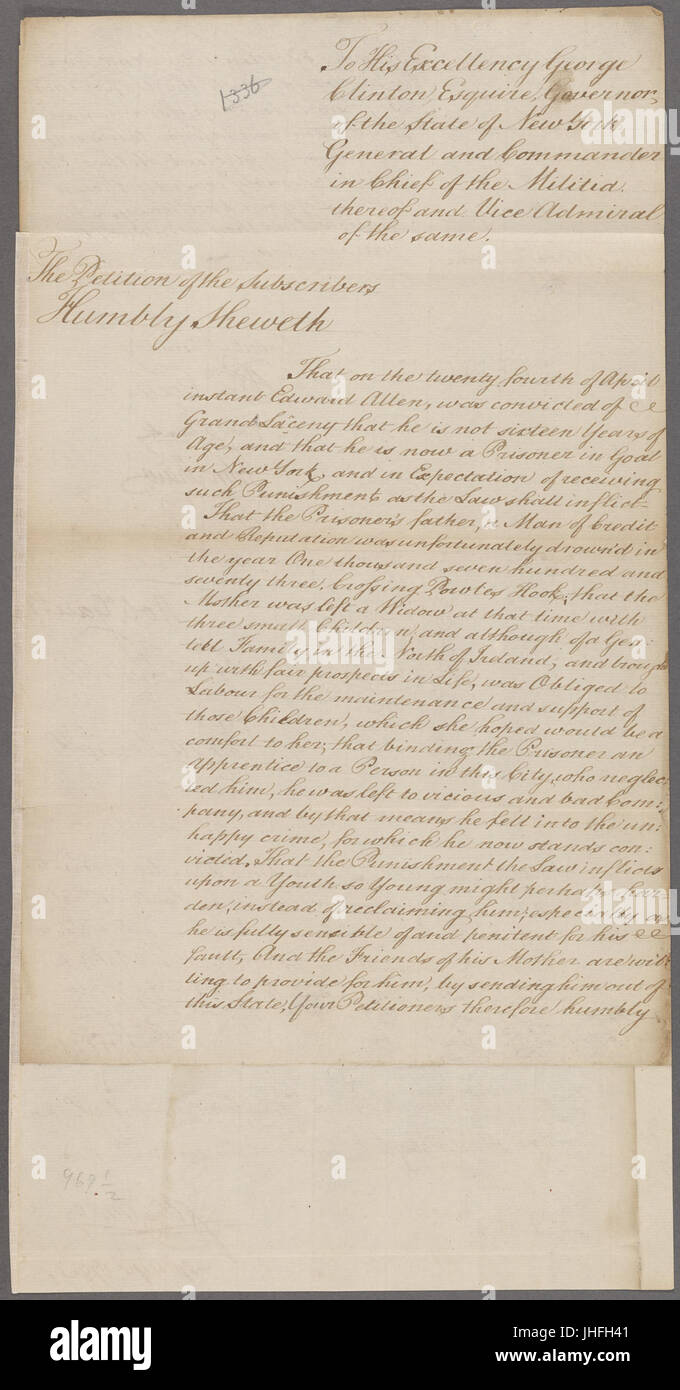 1336
To His Excellency George
Clinton Esquire, Governor,
of the State of New York
General and Commander
in Chief of the Militia
thereof and Vice Admiral
of the same.
The Petition of the Subscribers
Humbly Sheweth
That on the twenty fourth of April
instant Edward Allen, was convicted of
Grand Laceny that he is not sixteen Years of
Age, and that he is now a Prisoner in Goal
in New York, and in Expectation of receiving
such Punishment as the Law shall inflict–
That the Prisoner's father, a Man of Credit
and Reputation was unfortunately drown'd in
the year One thousand seven hundred and
seventy three, Crossing Powles Hook, that the
Mother was left a Widow at that time with
three small Children, and although of a Gen:
teel Family in the North of Ireland, and brought
up with fair prospects in Life, was Obliged to
Labour for the maintenance and support of
those Children, which she hoped would be a
comfort to her, that binding the Prisoner an
apprentice to a Person in this City, who neglec:
ted him, he was left to vicious and bad Com:
pany, and by that means he fell into the un:
happy crime, for which he now stands con:
victed. That the Punishment the Law inflicts
upon a Youth so Young might perhaps har:
den, instead of reclaiming him, especially as
he is fully sensible of and penitent for his
fault, And the Friends of his Mother are wil:
ling to provide for him, by sending him out of
this State, Your Petitioners therefore humbly
969 1/2
alamy
Image ID: JHFH41
www.alamy.com